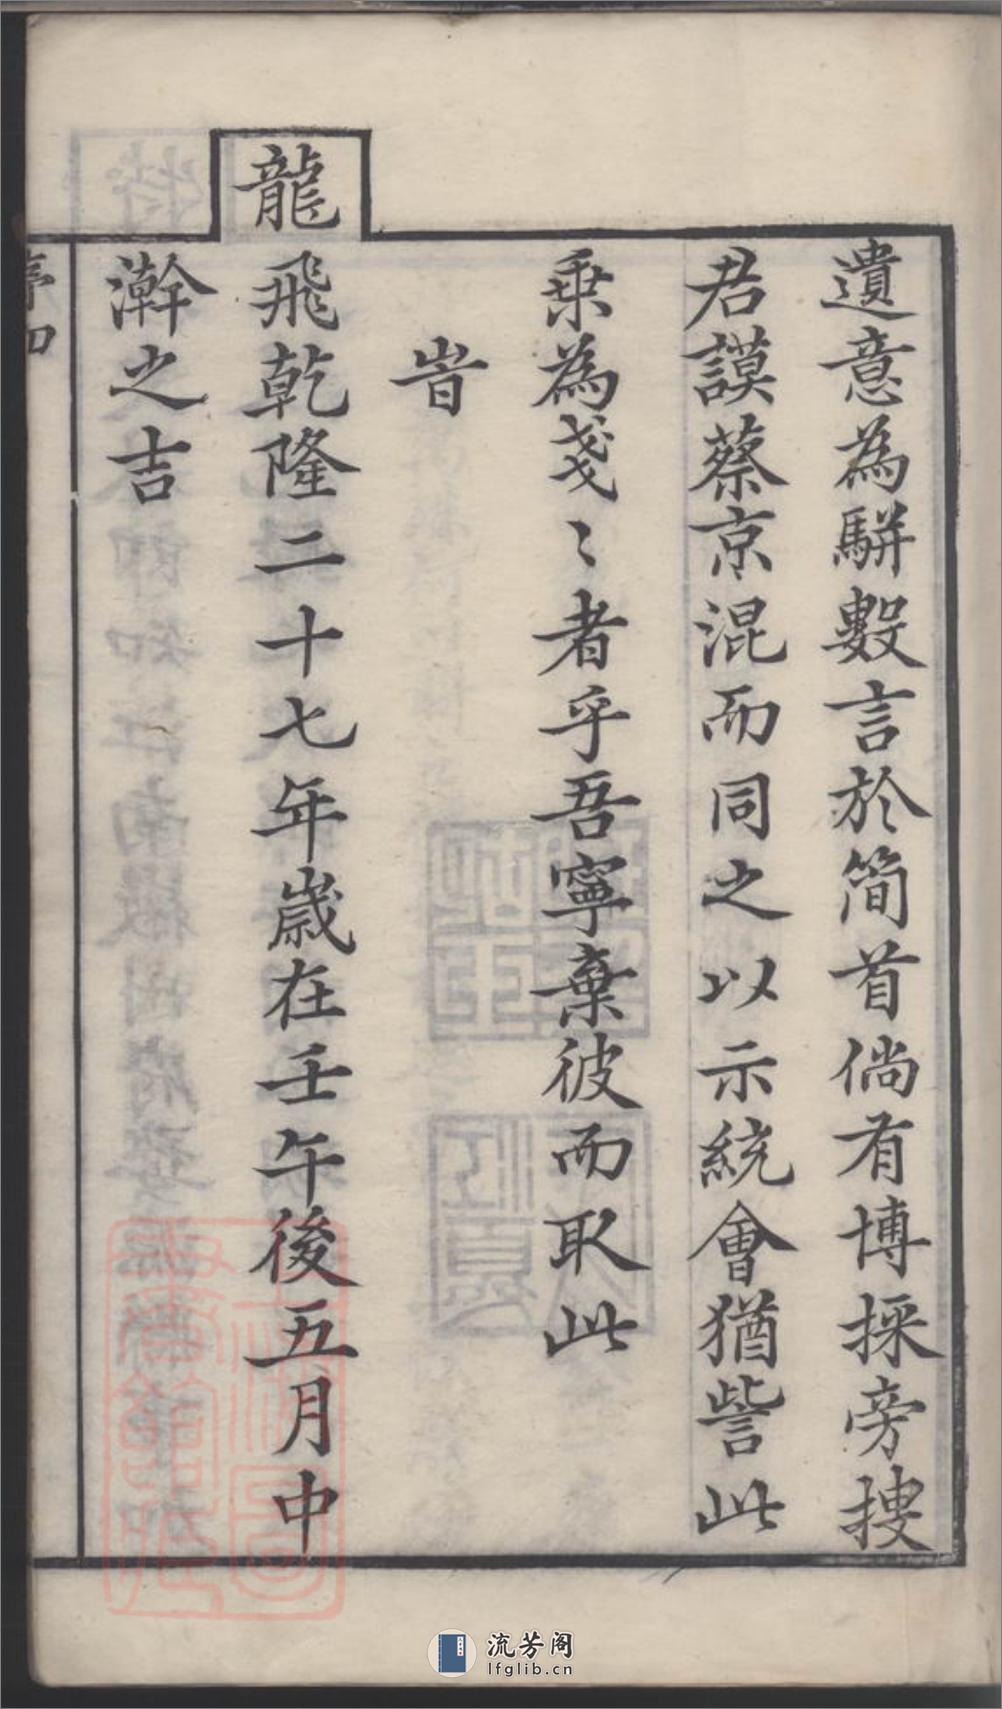 遺意為駢數言於簡首倘有博採旁搜
君謨蔡京混而同之以示統會猶訾此
乗為戔〻者乎吾寧棄彼而取此
旹
龍飛乾隆二十七年歲在壬午後五月中
澣之吉
序四
流芳阁
lfglib.cn